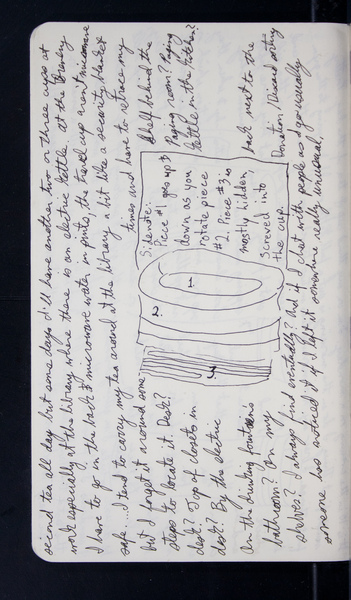 second tea all day but some days I'll have another two or three cups at
work especially at the library where there is an electric kettle. at the Granby
I have to go in the back & microwave water in pints, the travel cup aren't microwave
safe... I tend to carry my tea around at the library a bit like a security blanket
but I forget it around some times and have to retrace my
steps to locate it. Desk? Shelf behind the
desk? Top of closets in Paging room? Paging
desk? By the electric kettle in the kitchen?
On the drinking fountains back next to the
bathroom? On my Donation/Discard sorting
shelves? I always find eventually? And if I chat with people as I go usually
someone has noticed it if I left it somewhere really unusual.
Sidenote:
Piece #1 goes up &
down as you
rotate piece
#2. Piece #3 is
mostly hidden,
screwed into
the cup.
1.
2.
3.